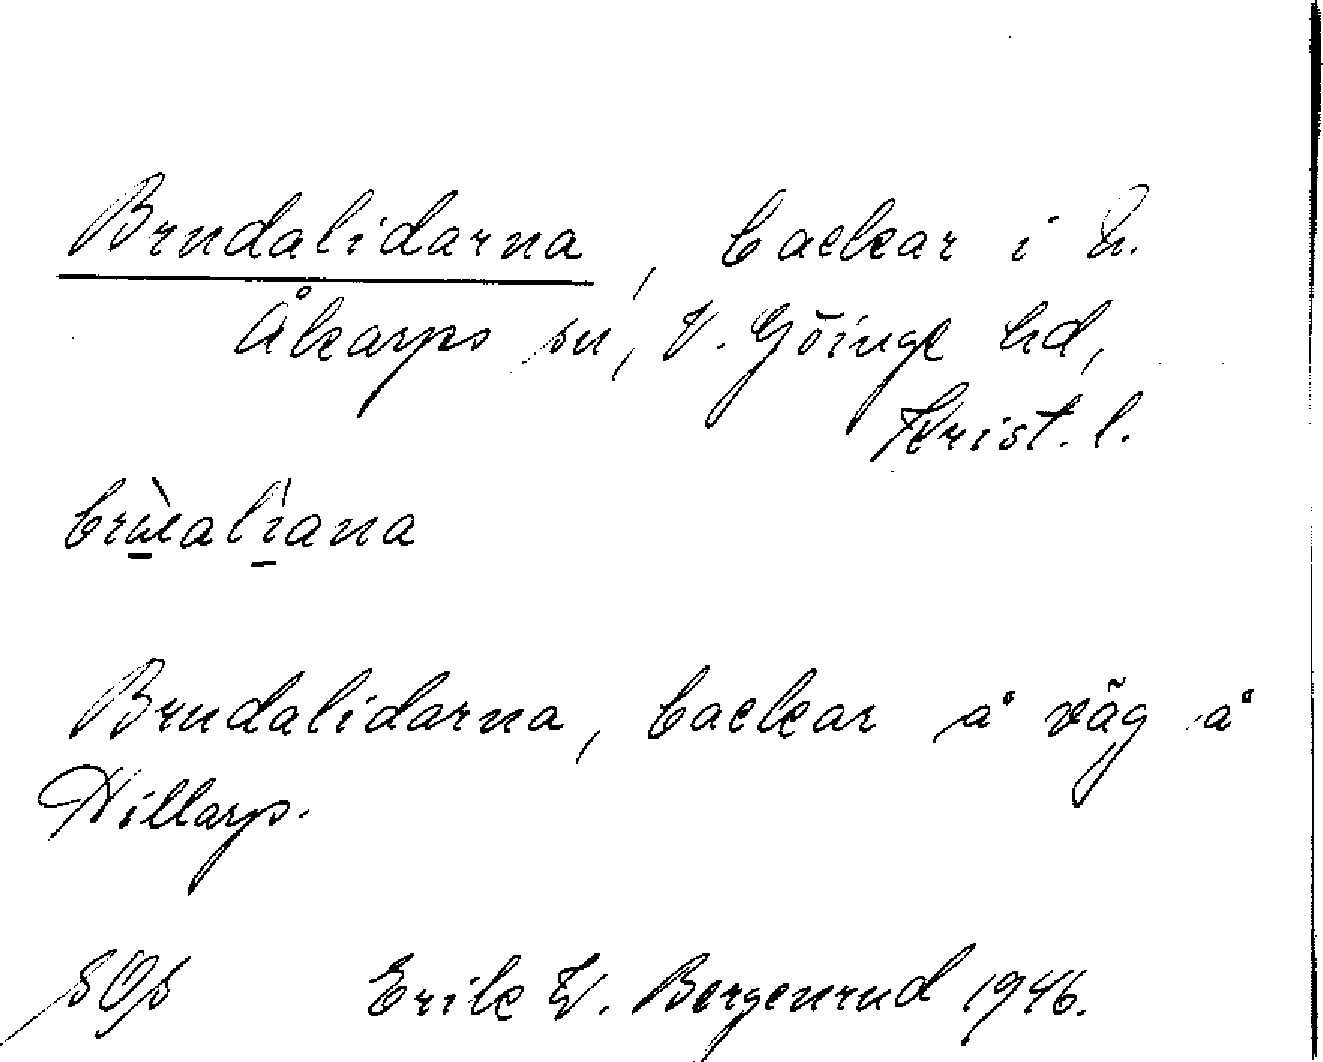 Brudalidarna, backar i N.
Åkarps sn, V. Göinge hd,
Krist. l.
Brudalidarna, backar å väg å
Hillarp.
Erik W. Bergenrud 1946.